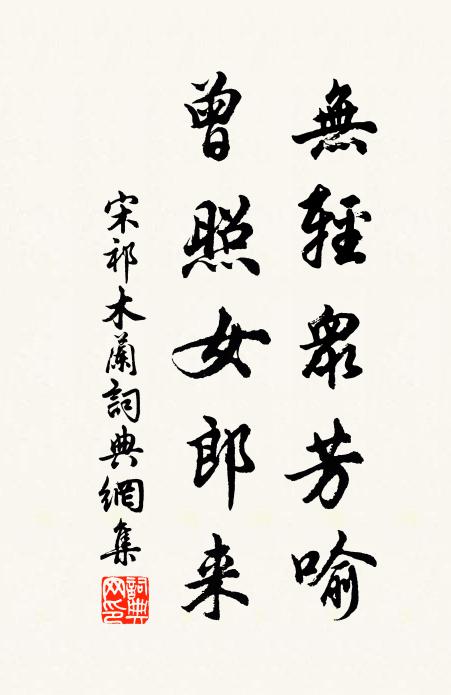 無輕眾芳喻
曾照女郎来
宋祁木蘭詞典網集
詞典網印